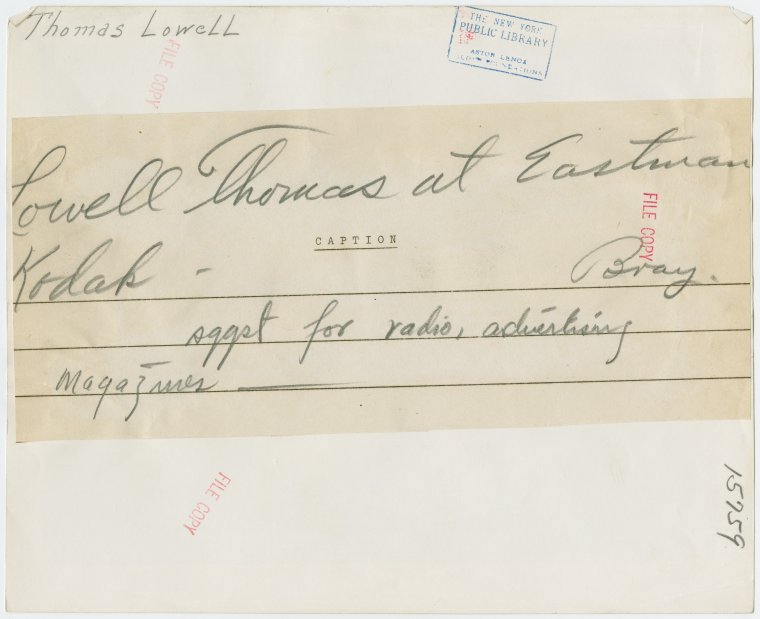 Thomas Lowell
THE NEW YORK
PUBLIC LIBRARY
ASTOR LENOX
FILE COPY
Lowell Thomas at Eastman
FILE COPY
CAPTION
Kodak - Bray.
sggst for radio, advertising
Magazines
FILE COPY
15759